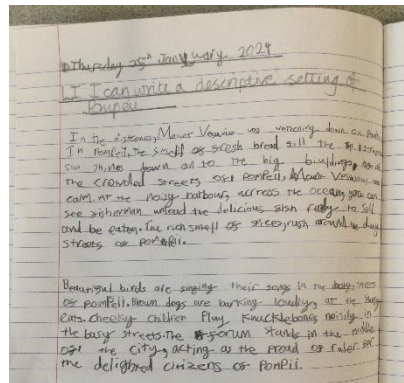 Thursday 25th January 2024
LI I can write a descriptive setting of
In the distance, Mount Vesuvius was watching down on
In Pompeii, the smell of fresh bread fill the
down on to the big
the crowded streets of Pompeii, Mount Vesuvius
calm. At the noisy harbour, across the ocean, you can
see fisherman unload the delicious fish ready to sell
and be eaten. The rich smell of spices rush around the
streets of Pompeii.
Beautiful birds are singing their songs in the busy
of Pompeii. Brown dogs are barking loudly, at the
cats. Cheeky children Play knucklebones noisily in
the busy streets. The forum stands in the middle
of the city, acting as the proud of
the delighted citizens of Pompii.